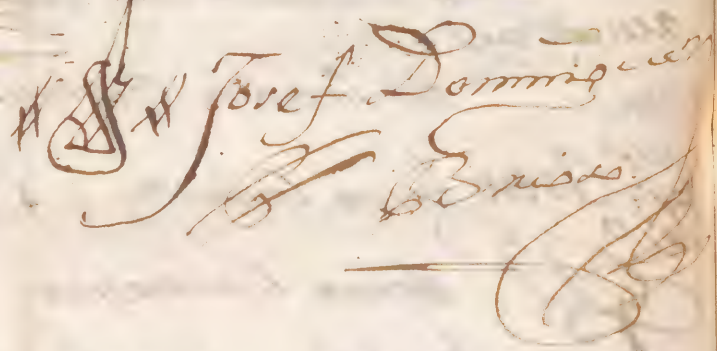 Josef Dominguez
Brioso